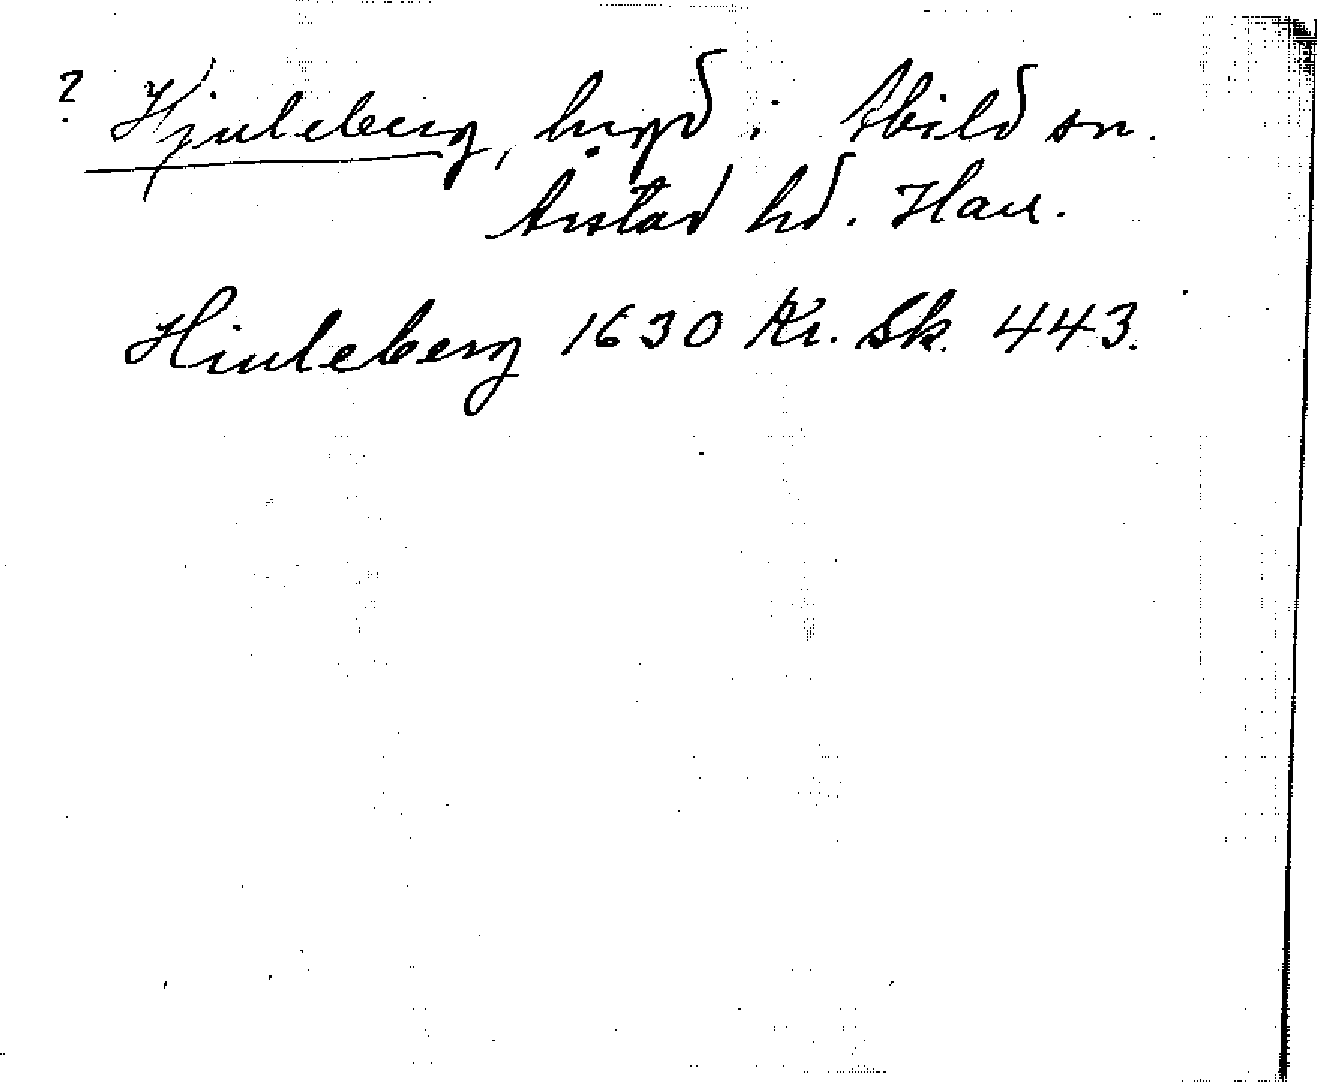 ? Hjuleberg, bygd i Abild sn.
Årstad hd. Hall.
Hiuleberg 1630 Kr. Sk. 443.